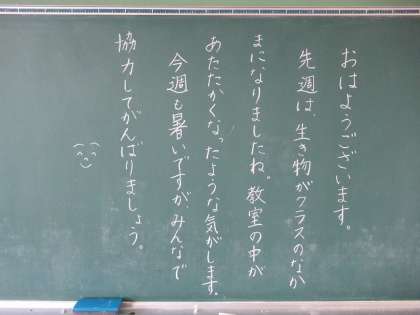 おはようございます。
先週は、生き物がクラスのなか
まになりましたね。教室の中が
あたたかくなったような気がします。
今週も暑いですがみんなで
協力してがんばりましょう。